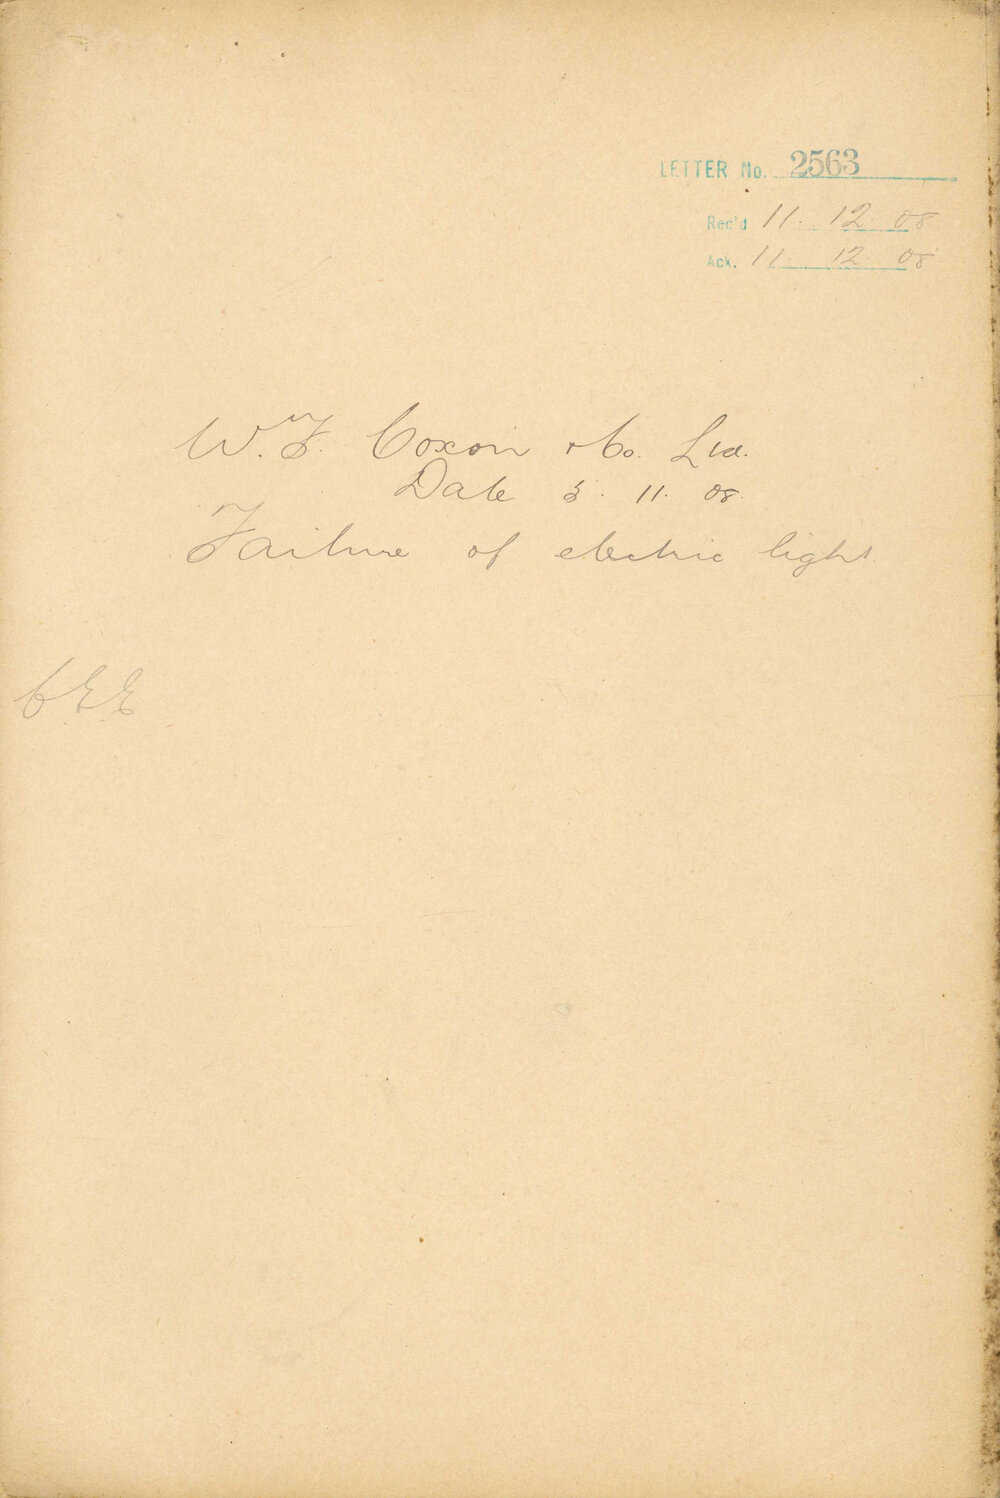 LETTER No. 2563
Rec'd 11. 12. 08
Ack. 11. 12. 08
W. F. Coxon & Co. Ltd.
Date 3. 11. 08.
Failure of electric light
CEE